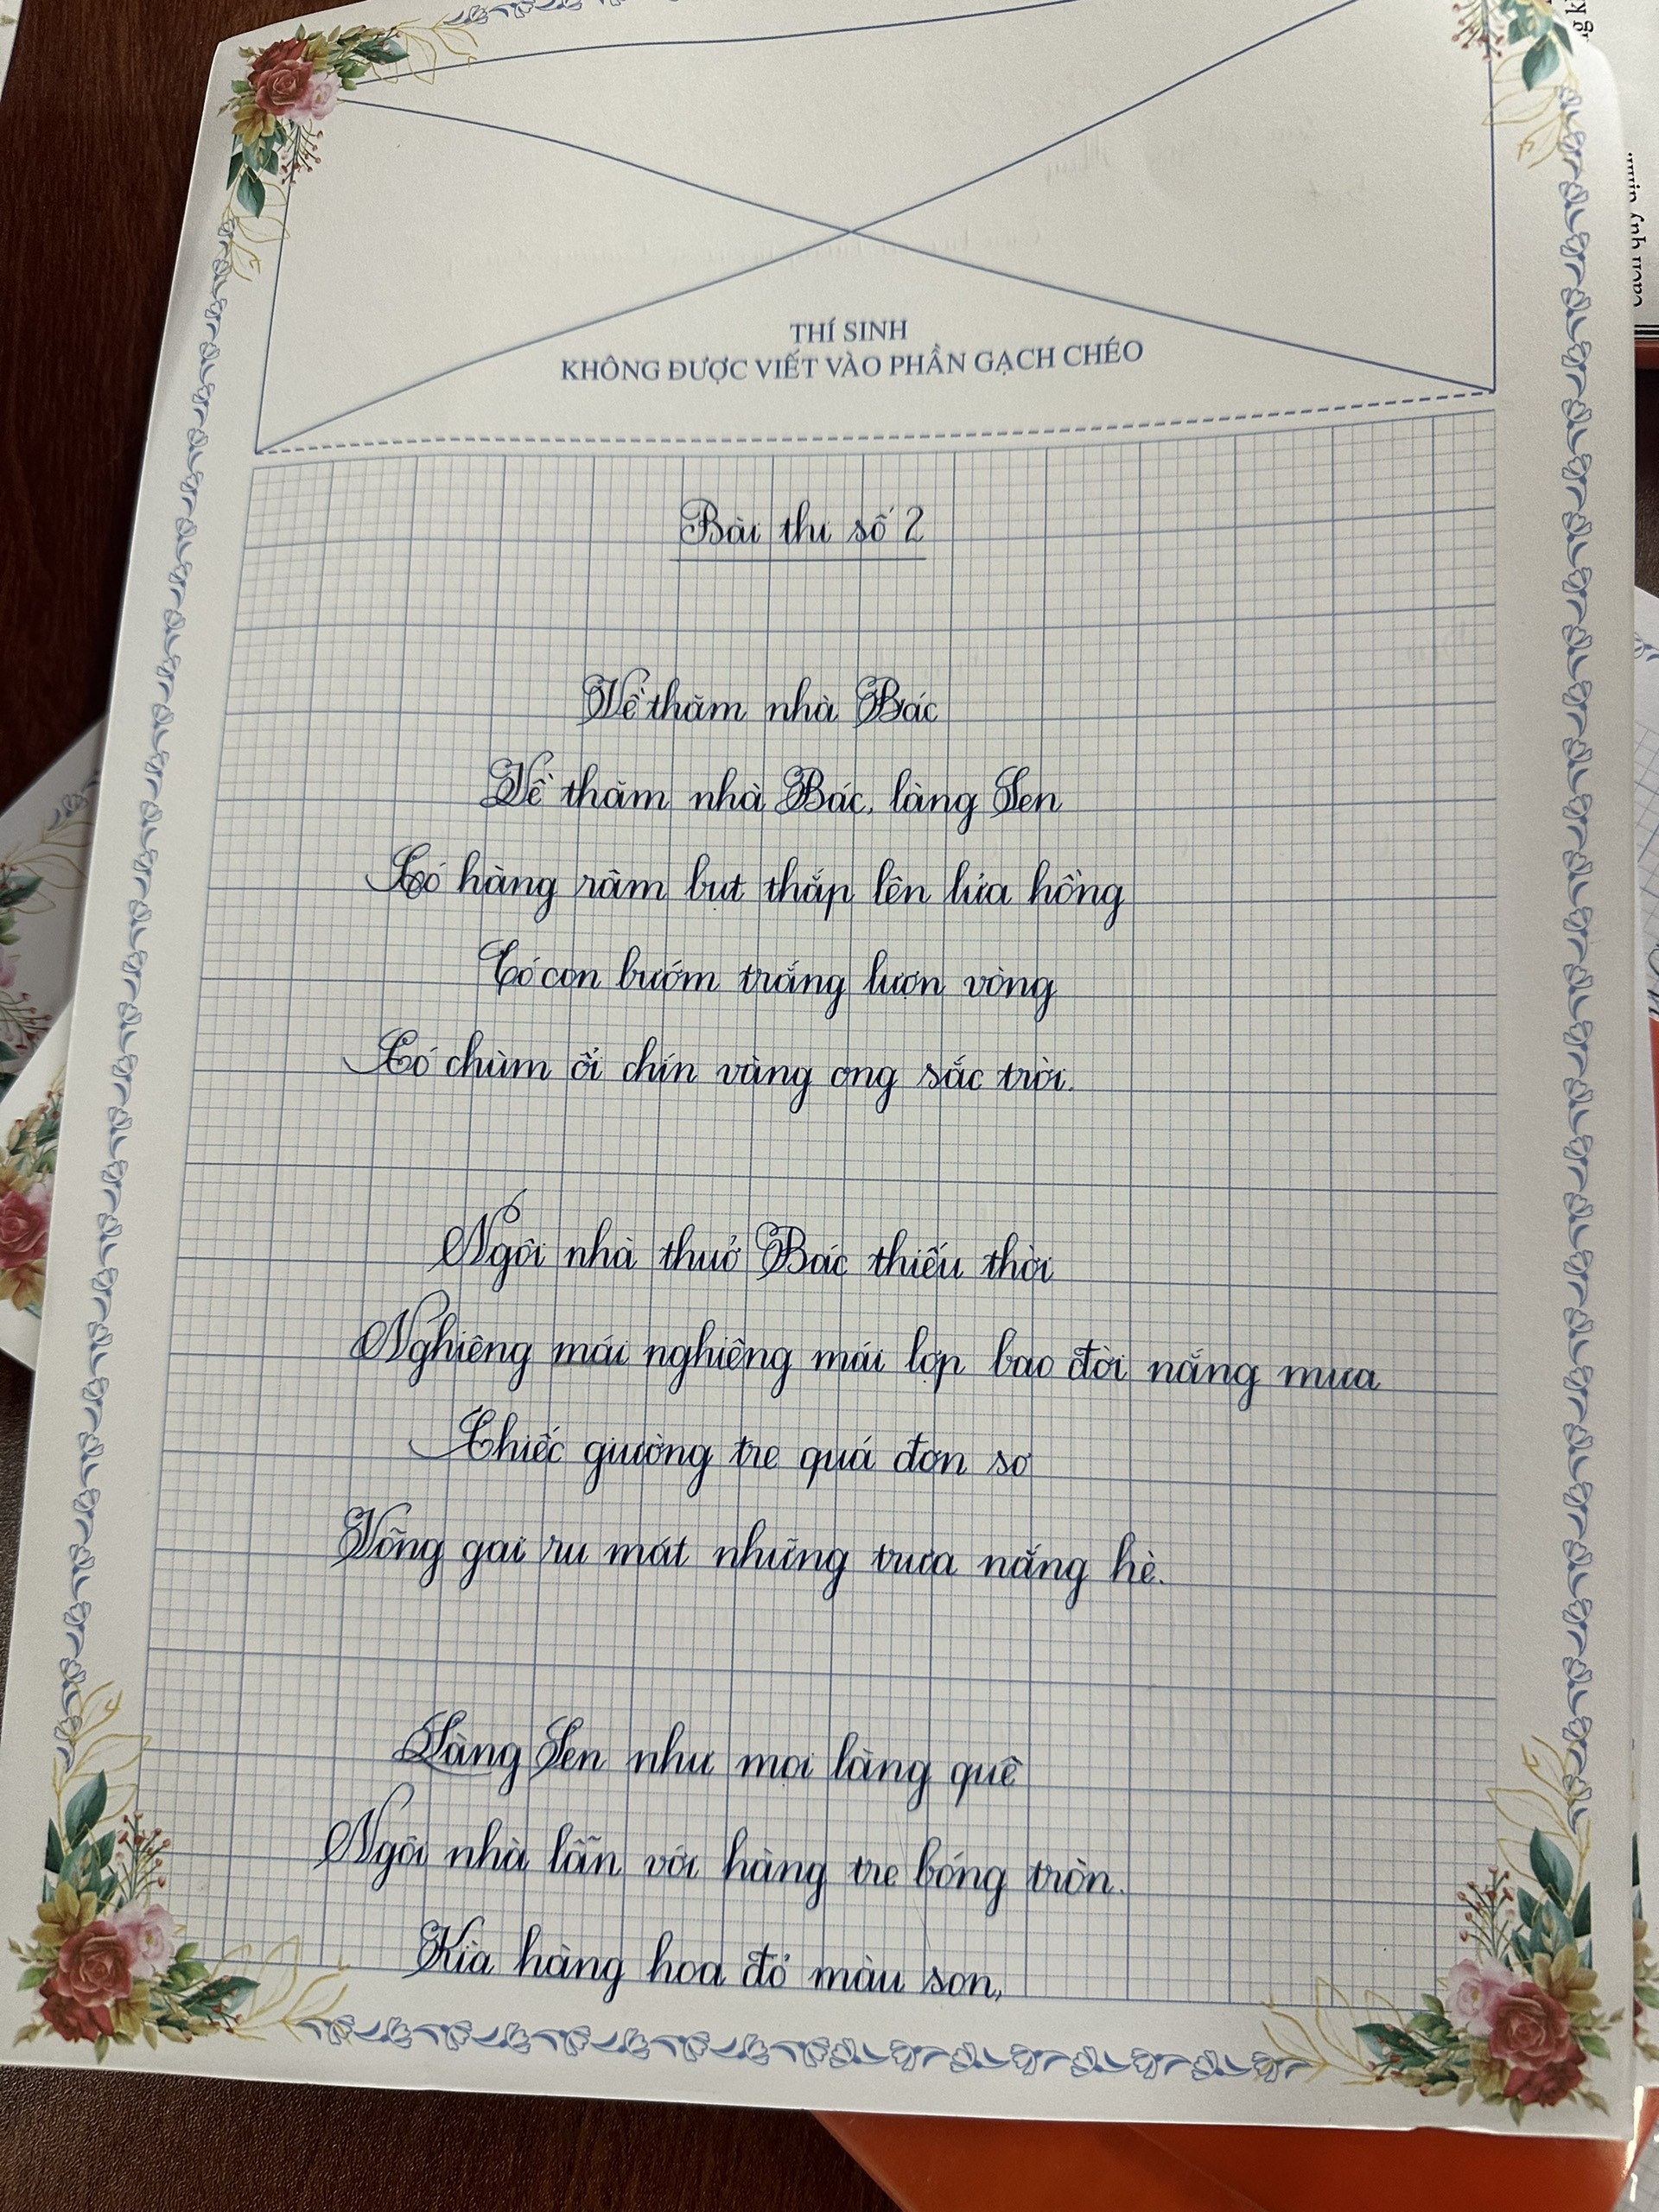 THÍ SINH
KHÔNG ĐƯỢC VIẾT VÀO PHẦN GẠCH CHÉO
Bài thi số 2
Về thăm nhà Bác
Về thăm nhà Bác, làng Sen
Có hàng râm bụt thắp lên lửa hồng
Có con bướm trắng lượn vòng
Có chùm ổi chín vàng ong sắc trời.
Ngôi nhà thuở Bác thiếu thời
Nghiêng mái nghiêng mái lợp bao đời nắng mưa
Chiếc giường tre quá đơn sơ
Võng gai ru mát những trưa nắng hè.
Làng Sen như mọi làng quê
Ngôi nhà lẫn với hàng tre bóng tròn.
Kìa hàng hoa đỏ màu son,